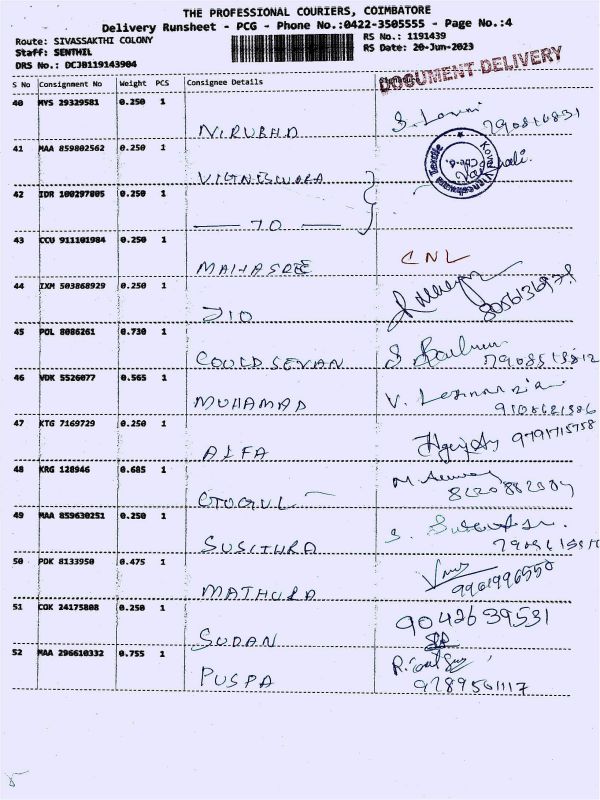 THE PROFESSIONAL COURIERS, COIMBATORE
Delivery Runsheet - PCG - Phone No.:0422-3505555 - Page No.:4
Route: SIVASSAKTHI COLONY
RS No.: 1191439
Staff: SENTHIL
RS Date: 20-Jun-2023
DRS No.: DCJB119143904
DOCUMENT DELIVERY
S No Consignment No Weight PCS Consignee Details
40 MYS 29329581 0.250 1
NIRUBHA
41 MAA 859802562 0.250 1
VIGNESWARA
42 IDR 100297005 0.250 1
— TO —
43 CCU 911101984 0.250 1
MAHASREE CNL
44 IXM 503868929 0.250 1
JIO
45 POL 8086261 0.730 1
COULDSEVAN
46 VDK 5526077 0.565 1
MUHAMAD V.
47 KTG 7169729 0.250 1
ALFA 9791715758
48 KRG 128946 0.685 1
OTOGUL M.
49 MAA 859630251 0.250 1
SUSITHRA S.
50 PDK 8133950 0.475 1
MATHURA 9961996550
51 COK 24175808 0.250 1
9042639531
SUDAN
52 MAA 296610332 0.755 1
PUSPA 9789561117